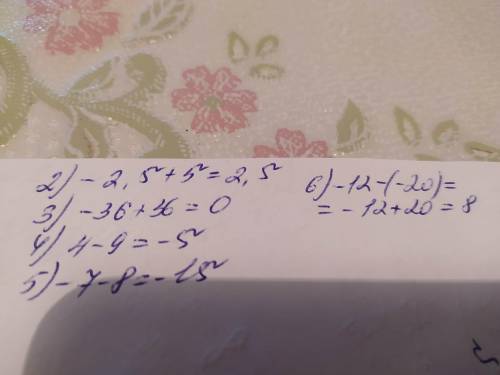 2) -2,5+5=2,5
3) -36+36=0
4) 4-9=-5
5) -7-8=-15
6) -12-(-20)=
=-12+20=8